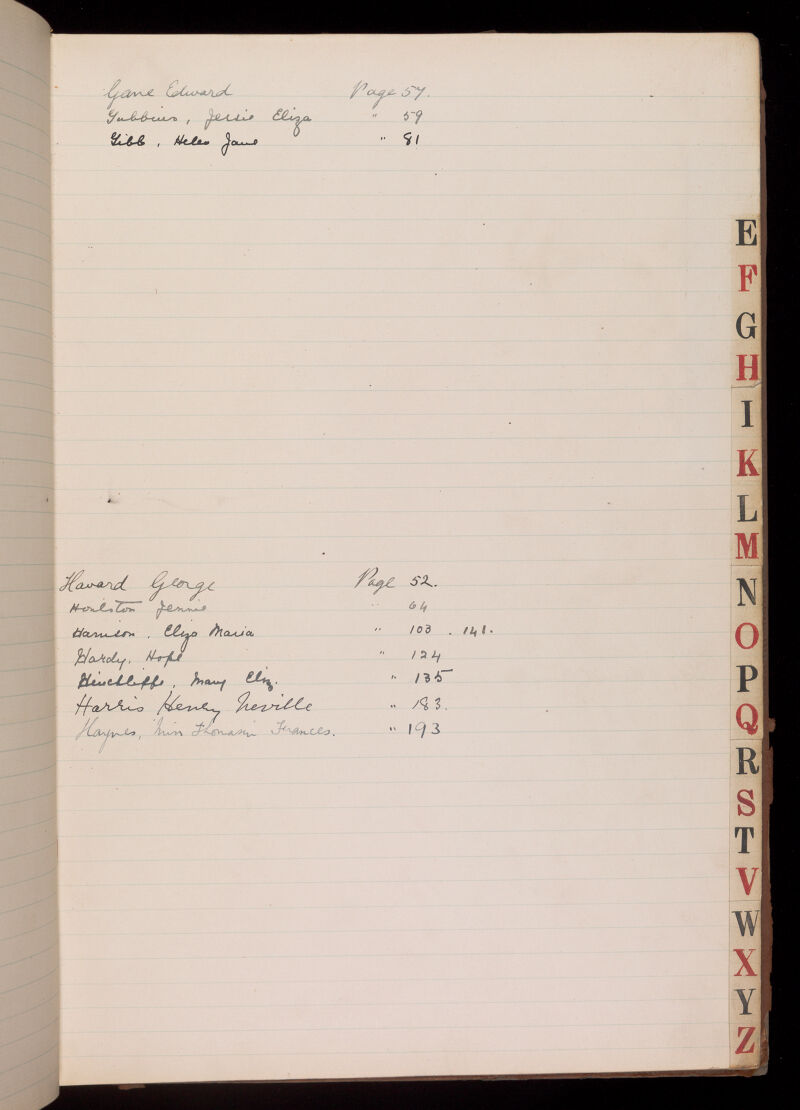 Gane Edward Page 57.
Gubbins, Jessie Eliza " 59
Gibb, Helen Jane " 81
Havard George Page 52.
Houlston Jennie " 64
Harrison, Eliza Maria " 103. 141.
Hardy, Hope " 124
Hinchliffe, Mary Eliz. " 135
Harris Henry Neville " 183.
Haynes, Miss Thomasin Frances. " 193
E
F
G
H
I
K
L
M
N
O
P
Q
R
S
T
V
W
X
Y
Z